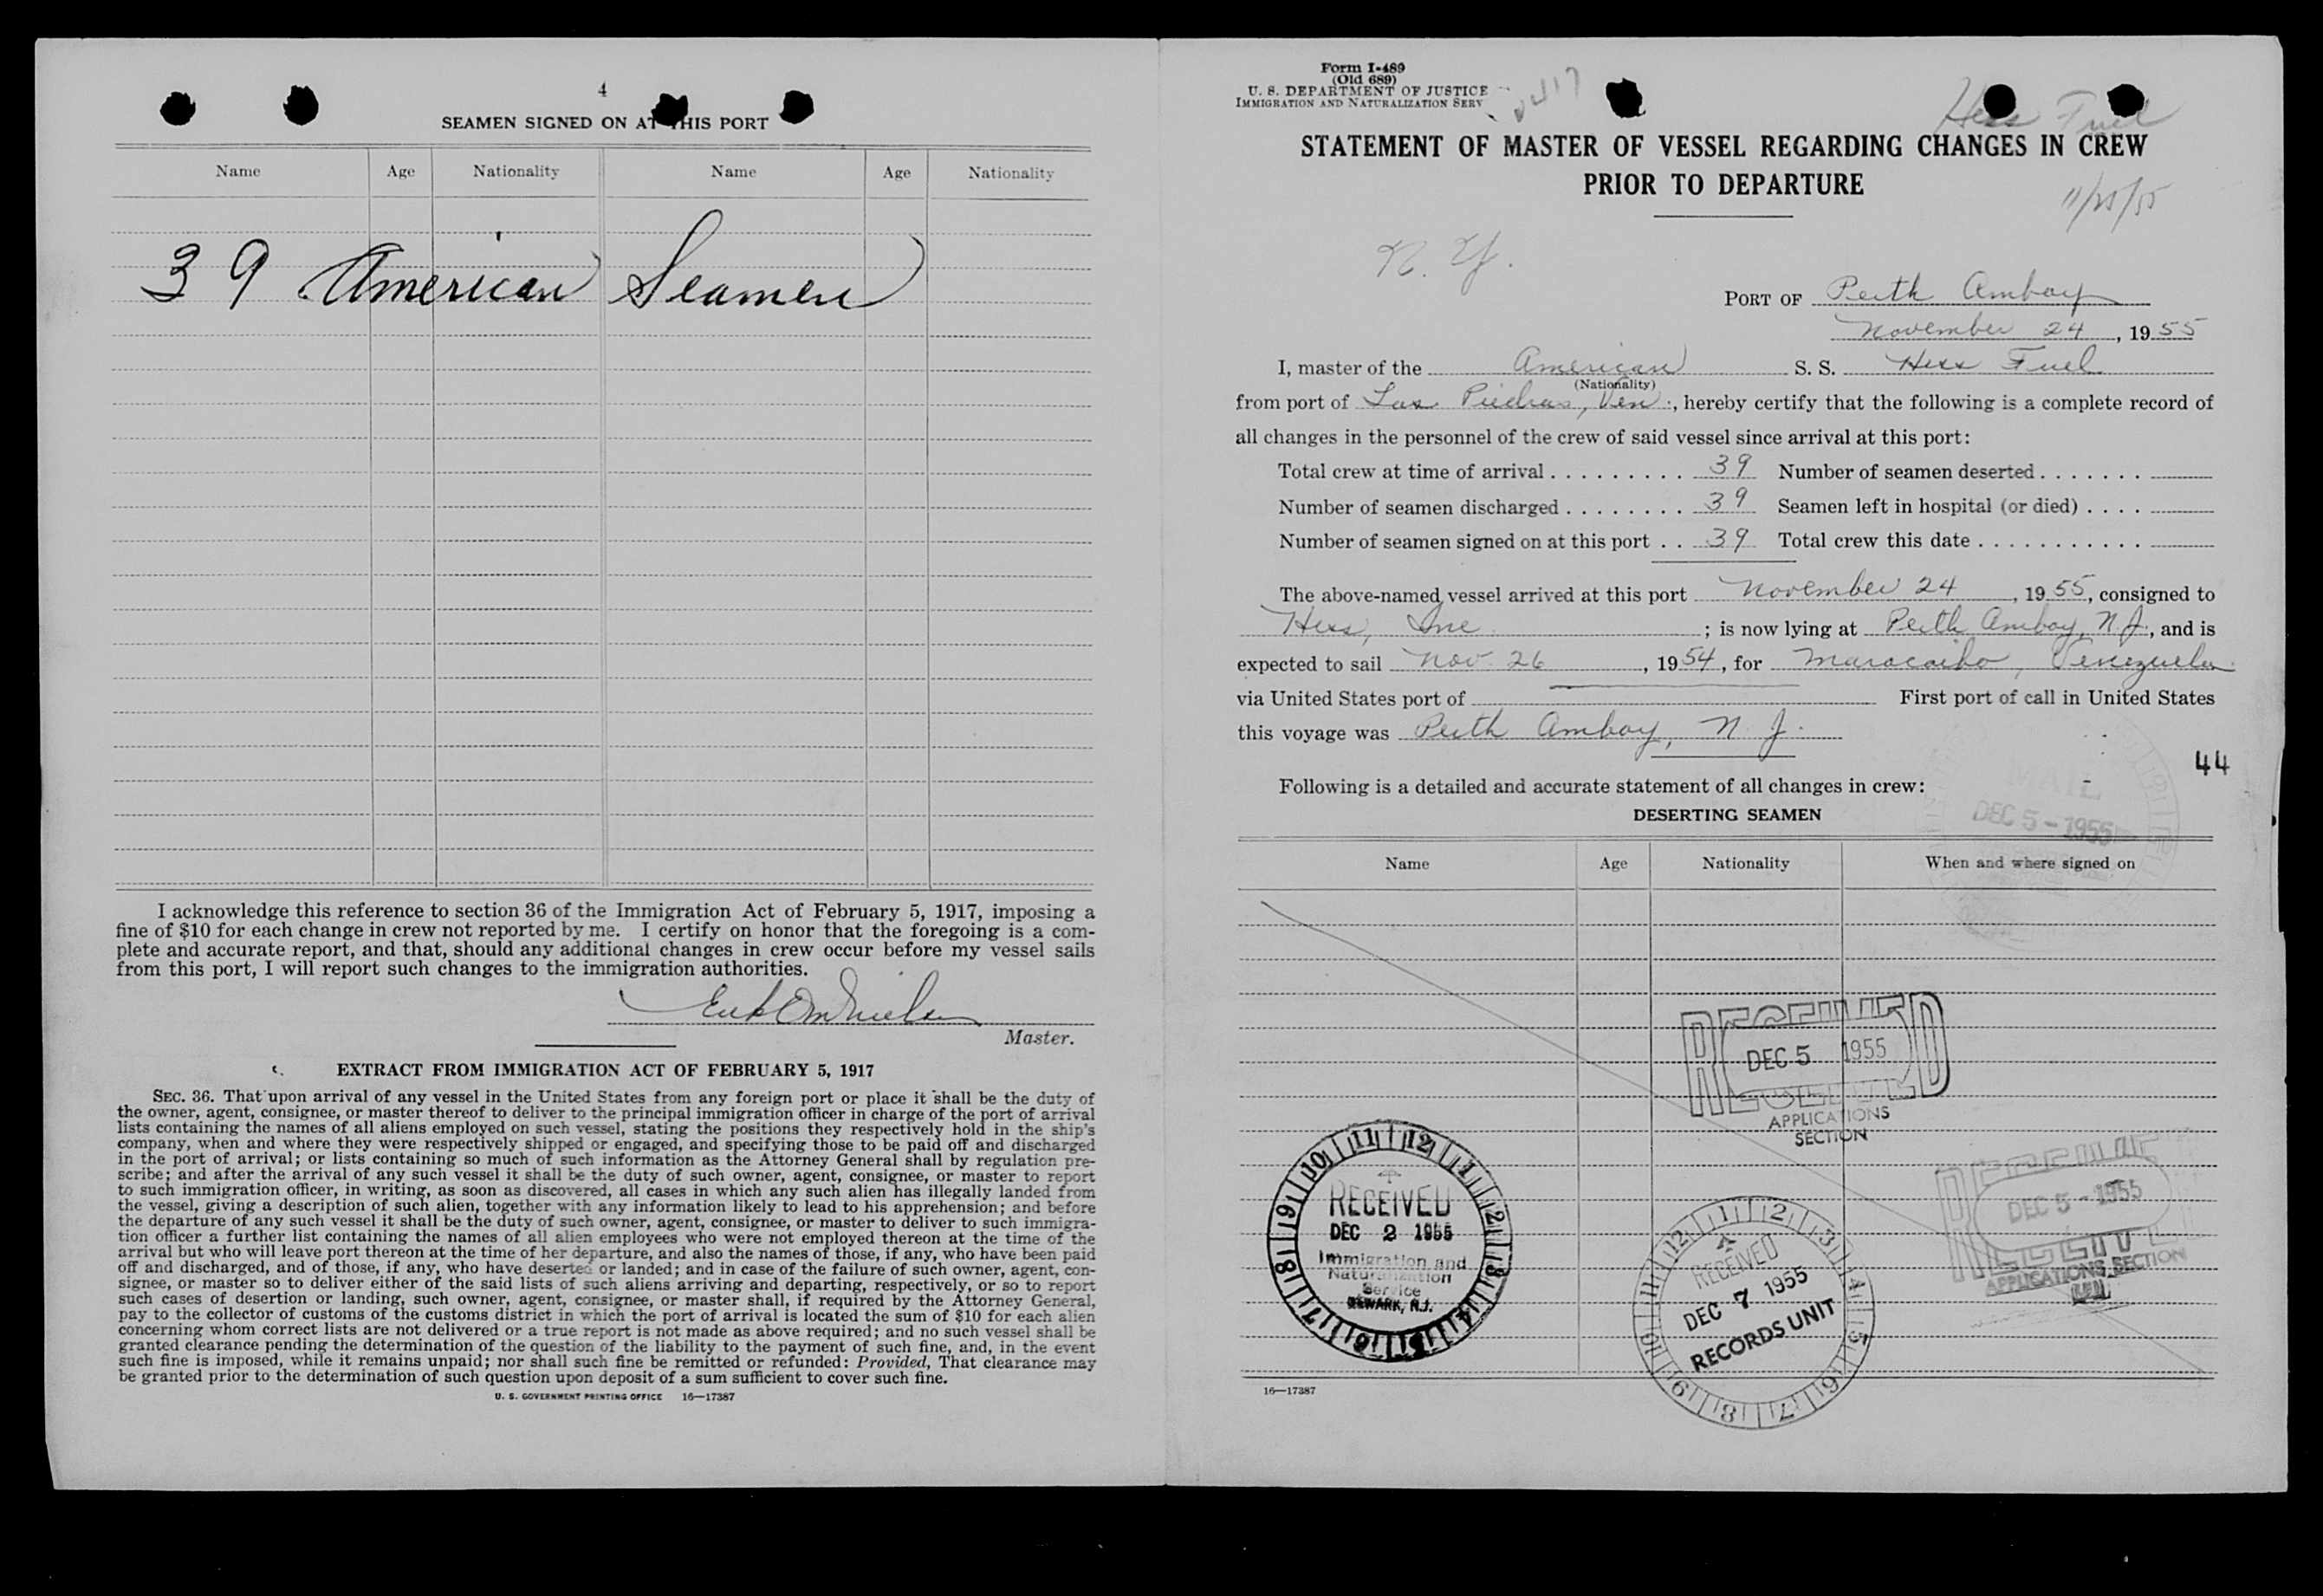 4
SEAMEN SIGNED ON AT THIS PORT
Name Age Nationality Name Age Nationality
39 American Seamen
I acknowledge this reference to section 36 of the Immigration Act of February 5, 1917, imposing a
fine of $10 for each change in crew not reported by me. I certify on honor that the foregoing is a com-
plete and accurate report, and that, should any additional changes in crew occur before my vessel sails
from this port, I will report such changes to the immigration authorities.
Master.
EXTRACT FROM IMMIGRATION ACT OF FEBRUARY 5, 1917
SEC. 36. That upon arrival of any vessel in the United States from any foreign port or place it shall be the duty of
the owner, agent, consignee, or master thereof to deliver to the principal immigration officer in charge of the port of arrival
lists containing the names of all aliens employed on such vessel, stating the positions they respectively hold in the ship's
company, when and where they were respectively shipped or engaged, and specifying those to be paid off and discharged
in the port of arrival; or lists containing so much of such information as the Attorney General shall by regulation pre-
scribe; and after the arrival of any such vessel it shall be the duty of such owner, agent, consignee, or master to report
to such immigration officer, in writing, as soon as discovered, all cases in which any such alien has illegally landed from
the vessel, giving a description of such alien, together with any information likely to lead to his apprehension; and before
the departure of any such vessel it shall be the duty of such owner, agent, consignee, or master to deliver to such immigra-
tion officer a further list containing the names of all alien employees who were not employed thereon at the time of the
arrival but who will leave port thereon at the time of her departure, and also the names of those, if any, who have been paid
off and discharged, and of those, if any, who have deserted or landed; and in case of the failure of such owner, agent, con-
signee, or master so to deliver either of the said lists of such aliens arriving and departing, respectively, or so to report
such cases of desertion or landing, such owner, agent, consignee, or master shall, if required by the Attorney General,
pay to the collector of customs of the customs district in which the port of arrival is located the sum of $10 for each alien
concerning whom correct lists are not delivered or a true report is not made as above required; and no such vessel shall be
granted clearance pending the determination of the question of the liability to the payment of such fine, and, in the event
such fine is imposed, while it remains unpaid; nor shall such fine be remitted or refunded: Provided, That clearance may
be granted prior to the determination of such question upon deposit of a sum sufficient to cover such fine.
U. S. GOVERNMENT PRINTING OFFICE 16—17387
Form I-489
(Old 689)
U. S. DEPARTMENT OF JUSTICE
IMMIGRATION AND NATURALIZATION SERV
Hess Fuel
STATEMENT OF MASTER OF VESSEL REGARDING CHANGES IN CREW
PRIOR TO DEPARTURE
11/25/55
N. Y.
PORT OF Perth Amboy
November 24, 1955
I, master of the American S. S. Hess Fuel
(Nationality)
from port of Las Piedras, Ven., hereby certify that the following is a complete record of
all changes in the personnel of the crew of said vessel since arrival at this port:
Total crew at time of arrival . . . . . . . . . 39 Number of seamen deserted . . . . . . .
Number of seamen discharged . . . . . . . . 39 Seamen left in hospital (or died) . . . .
Number of seamen signed on at this port . . 39 Total crew this date . . . . . . . . . . .
The above-named vessel arrived at this port November 24, 1955, consigned to
Hess, Inc. ; is now lying at Perth Amboy, N.J., and is
expected to sail Nov. 26, 1954, for Maracaibo, Venezuela
via United States port of First port of call in United States
this voyage was Perth Amboy, N. J.
44
Following is a detailed and accurate statement of all changes in crew:
MAIL
DEC 5 - 1955
DESERTING SEAMEN
Name Age Nationality When and where signed on
RECEIVED
DEC 5 1955
RECEIVED
APPLICATIONS
SECTION
RECEIVED
DEC 2 1955
Immigration and
Naturalization
Service
NEWARK, N.J.
RECEIVED
DEC 7 1955
RECORDS UNIT
RECEIVED
DEC 5 - 1955
APPLICATIONS SECTION
16—17387